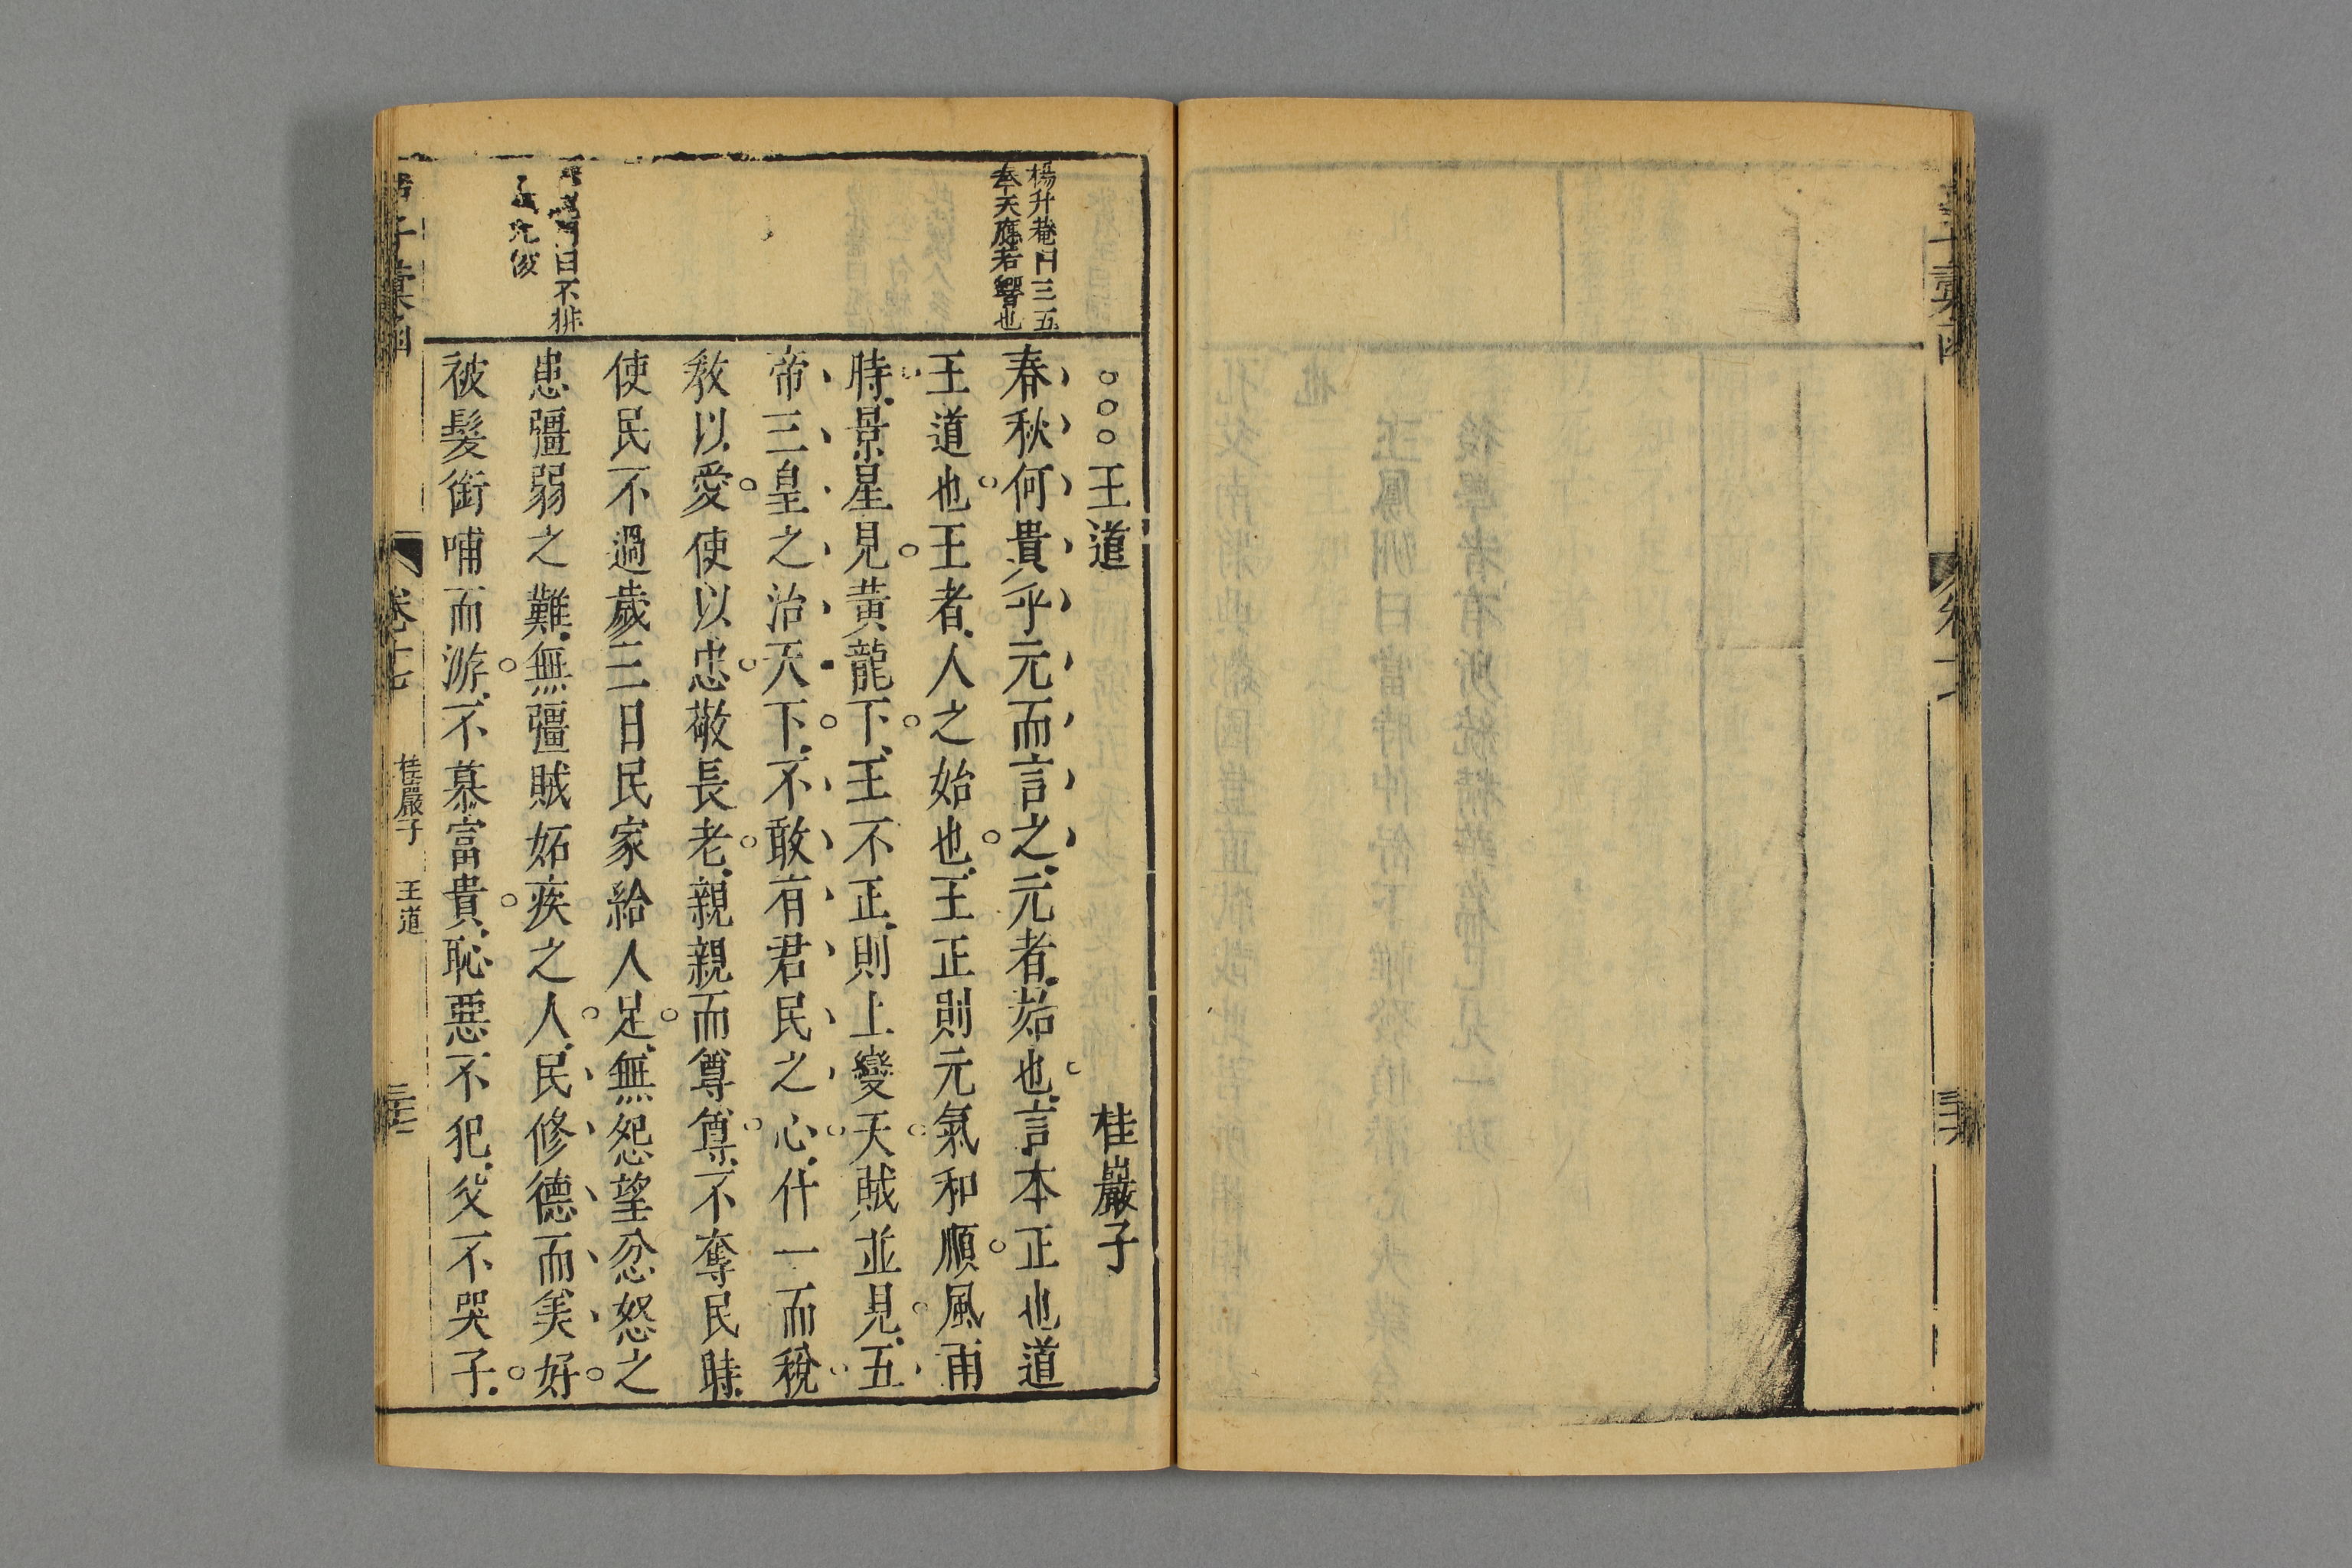 王道　桂巖子
春秋何貴乎元而言之元者始也言本正也道
王道也王者人之始也王正則元氣和順風雨
時景星見黃龍下王不正則上變天賊並見五
帝三皇之治天下不敢有君民之心什一而稅
敎以愛使以忠敬長老親親而尊尊不奪民時
使民不過歲三日民家給人足無怨望忿怒之
患彊弱之難無彊賊妬疾之人民修德而美好
被髮銜哺而游不慕富貴恥惡不犯父不哭子
楊升菴曰三五
奉天應若響也
曰不排
允俊
子彙函
卷十七
桂巖子　王道